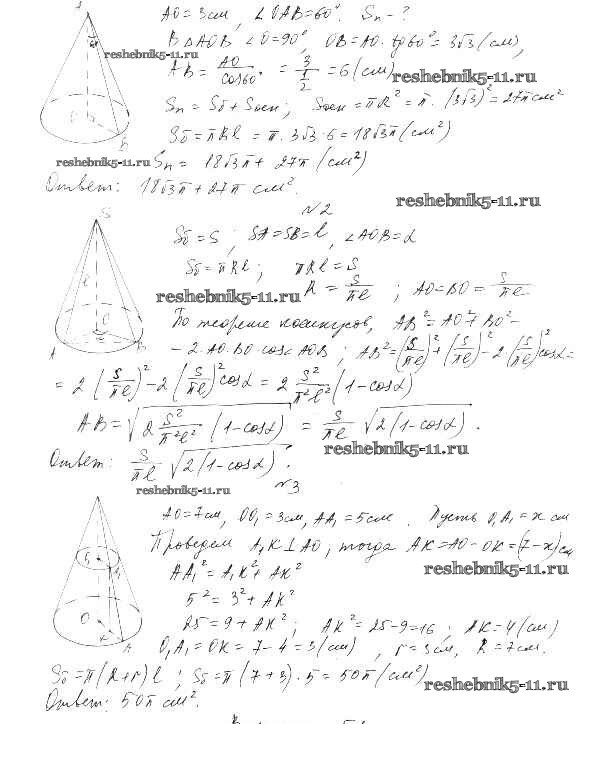 A
AO = 3см, ∠OAB = 60°. Sп - ?
В ΔAOB ∠O = 90°, OB = AO · tg60° = 3√3 (см),
reshebnik5-11.ru
AB = AO/cos60° = 3/(1/2) = 6 (см)
reshebnik5-11.ru
Sп = Sб + Sосн; Sосн = πR² = π · (3√3)² = 27π см²
O
B
Sб = πRl = π · 3√3 · 6 = 18√3π (см²)
reshebnik5-11.ru
Sп = 18√3π + 27π (см²)
Ответ: 18√3π + 27π см².
reshebnik5-11.ru
№2
S
Sб = S; SA = SB = l, ∠AOB = α
l
Sб = πRl; πRl = S
reshebnik5-11.ru
R = S/πl; AO = BO = S/πl
O
A
B
По теореме косинусов, AB² = AO² + BO² -
- 2·AO·BO·cos∠AOB; AB² = (S/πl)² + (S/πl)² - 2(S/πl)² cosα =
= 2(S/πl)² - 2(S/πl)² cosα = 2 S²/π²l² (1-cosα)
AB = √(2 S²/π²l² (1-cosα)) = S/πl √(2(1-cosα)).
reshebnik5-11.ru
Ответ: S/πl √(2(1-cosα)).
reshebnik5-11.ru
№3
AO = 7см, OO₁ = 3см, AA₁ = 5см. Пусть O₁A₁ = x см
Проведем A₁K⊥AO, тогда AK = AO - OK = (7-x) см
reshebnik5-11.ru
AA₁² = A₁K² + AK²
5² = 3² + AK²
25 = 9 + AK²; AK² = 25-9 = 16; AK = 4 (см)
O
K
A
O₁A₁ = OK = 7-4 = 3 (см), r = 3см, R = 7см.
Sб = π(R+r)l; Sб = π(7+3)·5 = 50π (см²)
reshebnik5-11.ru
Ответ: 50π см².